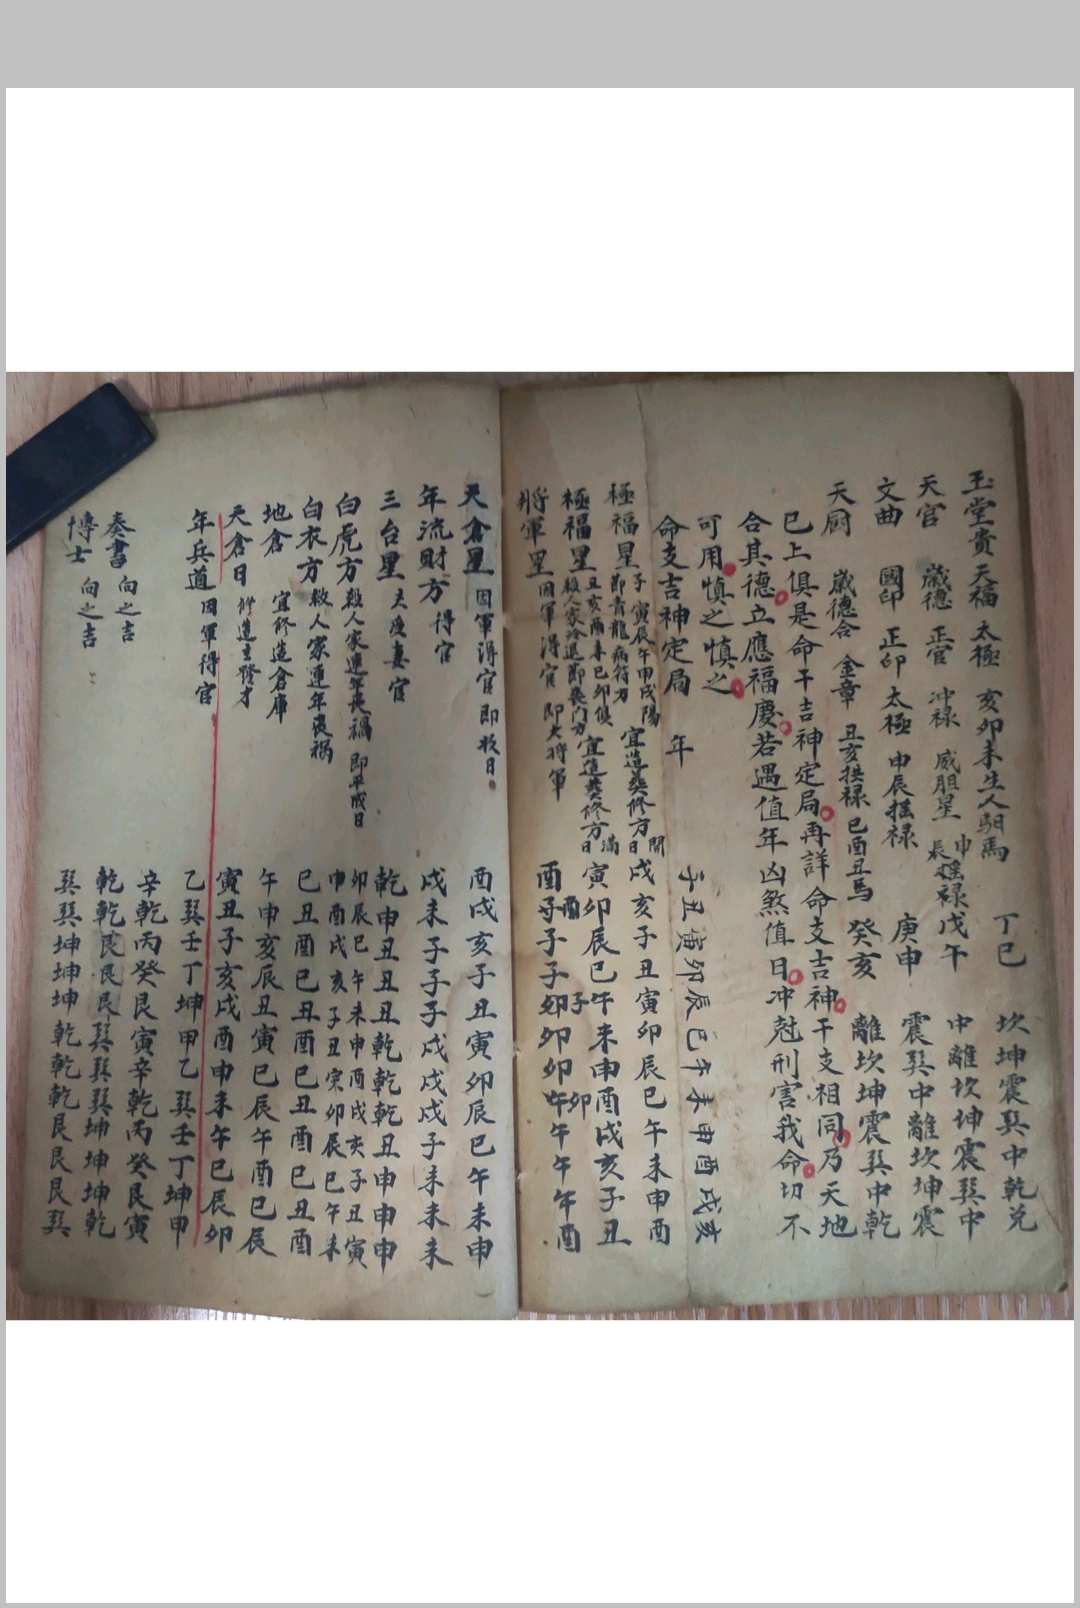 玉堂貴 天福 太極 亥卯未生人馹馬 丁巳 坎坤震巽中乾兑
天官 歲德 正官 冲禄 威胆星 申辰 搖禄 戊午 中離坎坤震巽中
文曲 國印 正印 太極 申辰搖禄 庚申 震巽中離坎坤震
天厨 歲德合 金章 丑亥拱禄 巳酉丑馬 癸亥 離坎坤震巽中乾
已上俱是命干吉神定局再詳命支吉神干支相同乃天地
合其德立應福慶若遇值年凶煞值日冲尅刑害我命切不
可用慎之慎之
命支吉神定局 年 子丑寅卯辰巳午未申酉戌亥
極福星 子寅辰午申戌陽 即青龍病符方 宜造葬修方 開日 戌亥子丑寅卯辰巳午未申酉
極福星 丑亥酉未巳卯 殺人家冷退即喪门方 宜造葬修方 滿日 寅卯辰巳午未申酉戌亥子丑
將軍星 因軍得官 即大將軍 酉酉子子子卯卯卯午午午酉
天倉星 因軍得官 即收日 酉戌亥子丑寅卯辰巳午未申
年流財方 得官 戌未子子子戌戌戌子未未未
三台星 夫受妻官 乾申丑丑丑乾乾乾丑申申申
白虎方 殺人家連年丧禍 即平成日 卯辰巳午未申酉戌亥子丑寅 申酉戌亥子丑寅卯辰巳午未
白衣方 殺人家連年丧禍 巳丑酉巳丑酉巳丑酉巳丑酉
地倉 宜修造倉庫 午申亥辰丑寅巳辰午酉巳辰
天倉日 修造主發才 寅丑子亥戌酉申未午巳辰卯
年兵道 因軍得官 乙巽壬丁坤甲乙巽壬丁坤甲
辛乾丙癸艮寅辛乾丙癸艮寅
奏書 向之吉 乾乾艮艮艮巽巽巽坤坤坤乾
博士 向之吉 巽巽坤坤坤乾乾乾艮艮艮巽